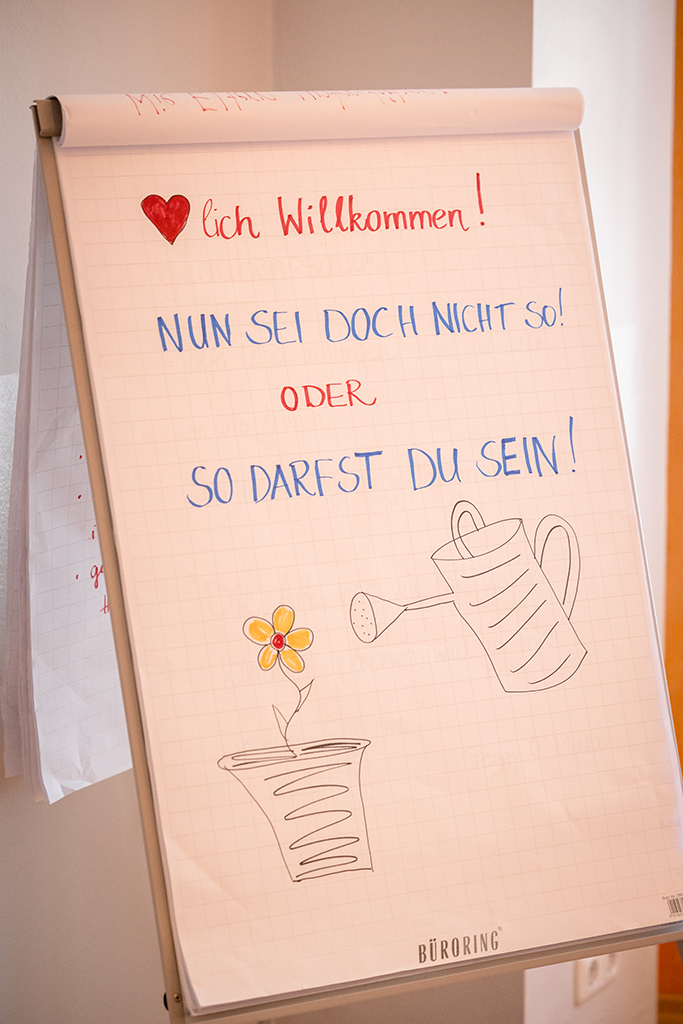 lich Willkommen!
NUN SEI DOCH NICHT SO!
ODER
SO DARFST DU SEIN!
BÜRORING®